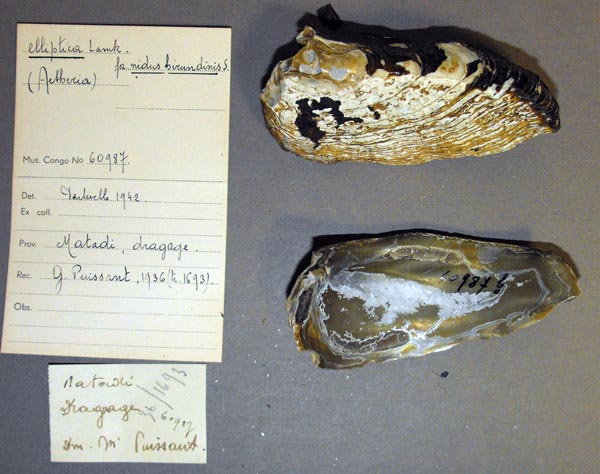 elliptica Lamk.
fa nidus hirundinis S.
(Aetheria)
Mus. Congo No 60987.
Det. 1942
Ex coll.
Prov. Matadi, dragage.
Rec. G. Puissant, 1936 (t. 1693).
Obs.
Matadi
Dragage
36/1693
60987
Dm. Mr Puissant.
60987